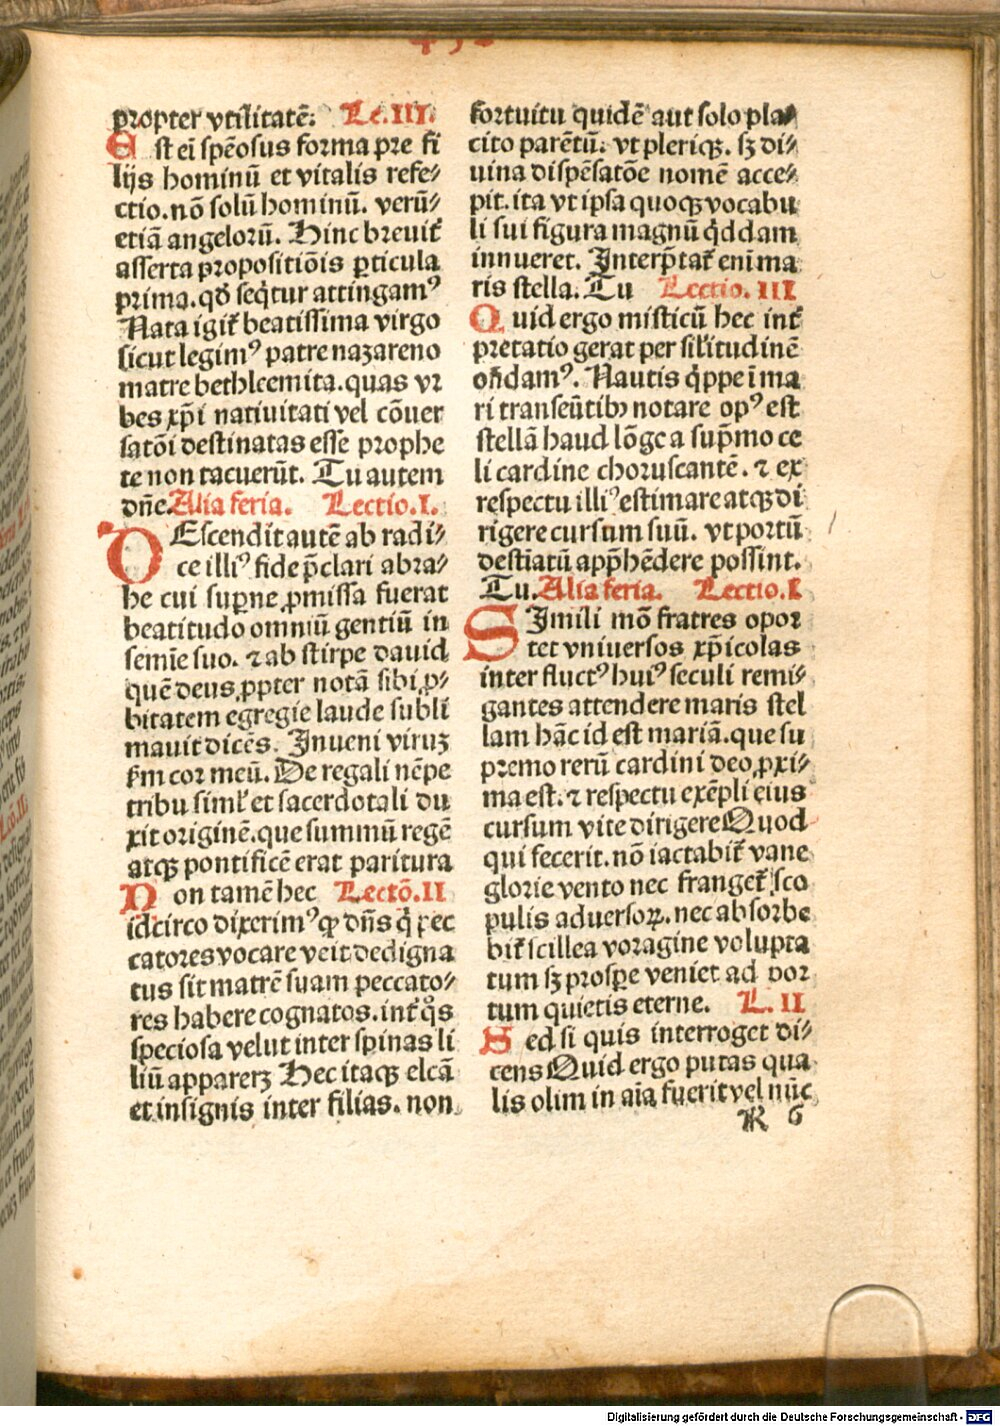 propter vtilitatē: Le.III.
Est ei̅ spēosus forma pre fi
lijs hominū et vitalis refe⸗
ctio. nō solū hominū. verū⸗
etiā angelorū. Hinc breuit̄
asserta propositiōis ꝑticula
prima. qd̄ seq̄tur attingamꝰ
Nata igit̄ beatissima virgo
sicut legimꝰ patre nazareno
matre bethleemita. quas vr
bes xp̄i natiuitati vel cōuer
satōi destinatas esse prophe
te non tacuerūt. Tu autem
dn̄e. Alia feria. Lectio.I.
DEscendit autē ab radi⸗
ce illiꝰ fide p̄clari abra⸗
he cui suꝑne ꝓmissa fuerat
beatitudo omniū gentiū in
semīe suo. ⁊ ab stirpe dauid
quē deus ꝓpter notā sibi ꝓ⸗
bitatem egregie laude subli
mauit dicēs. Inueni viruꝫ
s̄m cor meū. De regali nēpe
tribu siml̄ et sacerdotali du
xit originē. que summū regē
atqꝫ pontificē erat paritura
Non tamē hec Lectō.II
idcirco dixerimꝰ ꝙ dn̄s q̄ pec
catores vocare veīt dedigna
tus sit matrē suam peccato⸗
res habere cognatos. int̄ qͦs
speciosa velut inter spinas li
liū appareꝫ Hec itaqꝫ elcā
et insignis inter filias. non
fortuitu quidē aut solo pla⸗
cito parētū. vt pleriqꝫ. sꝫ di⸗
uina dispēsatōe nomē acce⸗
pit. ita vt ipsa quoqꝫ vocabu
li sui figura magnū q̇ddam
innueret. Interp̄tat̄ eni̅ ma
ris stella. Tu Lectio. III
Quid ergo misticū hec int̄
pretatio gerat per sil̄itudinē
on̄damꝰ. Nautis q̇ppe ī ma
ri transeūtibꝫ notare opꝰ est
stellā haud lōge a sup̄mo ce
li cardine choruscantē. ⁊ ex
respectu illiꝰ estimare atqꝫ di
rigere cursum suū. vt portū
destiatū app̄hēdere possint.
Tu. Alia feria. Lectio.I
SImili mō fratres opor
tet vniuersos xp̄icolas
inter fluctꝰ huiꝰ seculi remi⸗
gantes attendere maris stel
lam hāc id est mariā. que su
premo rerū cardini deo ꝓxi⸗
ma est. ⁊ respectu exēpli eius
cursum vite dirigere Quod
qui fecerit. nō iactabit̄ vane
glorie vento nec franget̄ sco
pulis aduersoꝝ. nec absorbe
bit̄ scillea voragine volupta
tum sꝫ prosꝑe veniet ad por
tum quietis eterne. L. II
Sed si quis interroget di⸗
cens Quid ergo putas qua
lis olim in aīa fuerit vel nūc
R 6
Digitalisierung gefördert durch die Deutsche Forschungsgemeinschaft - DFG